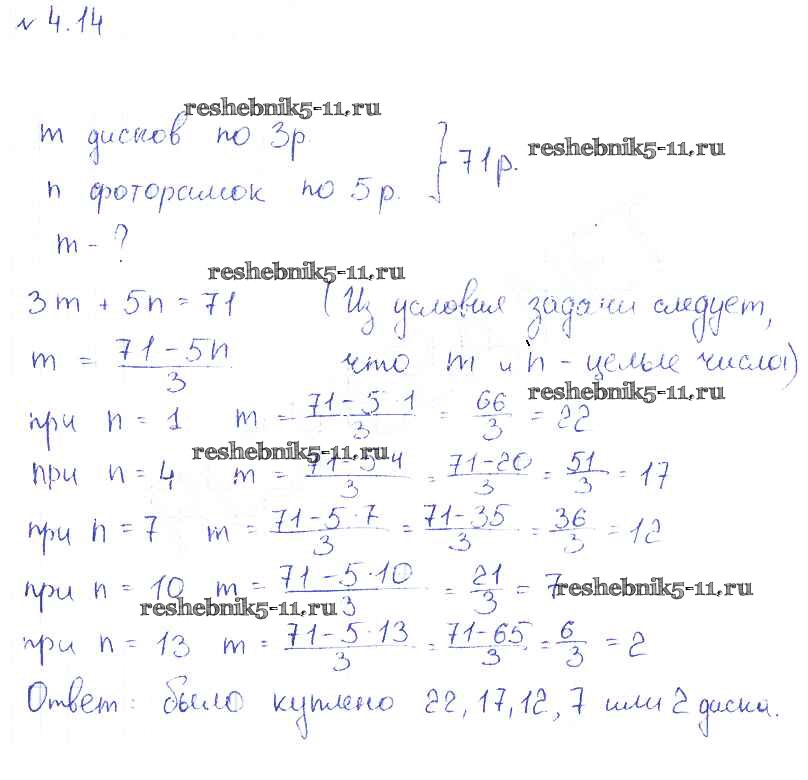 № 4.14
reshebnik5-11.ru
m дисков по 3р.
n фоторамок по 5р. } 71р. reshebnik5-11.ru
m - ?
reshebnik5-11.ru
3m + 5n = 71 (Из условия задачи следует,
m = (71 - 5n)/3 что m и n - целые числа)
reshebnik5-11.ru
при n = 1 m = (71 - 5·1)/3 = 66/3 = 22
reshebnik5-11.ru
при n = 4 m = (71 - 5·4)/3 = (71 - 20)/3 = 51/3 = 17
при n = 7 m = (71 - 5·7)/3 = (71 - 35)/3 = 36/3 = 12
при n = 10 m = (71 - 5·10)/3 = 21/3 = 7 reshebnik5-11.ru
reshebnik5-11.ru
при n = 13 m = (71 - 5·13)/3 = (71 - 65)/3 = 6/3 = 2
Ответ: было куплено 22, 17, 12, 7 или 2 диска.